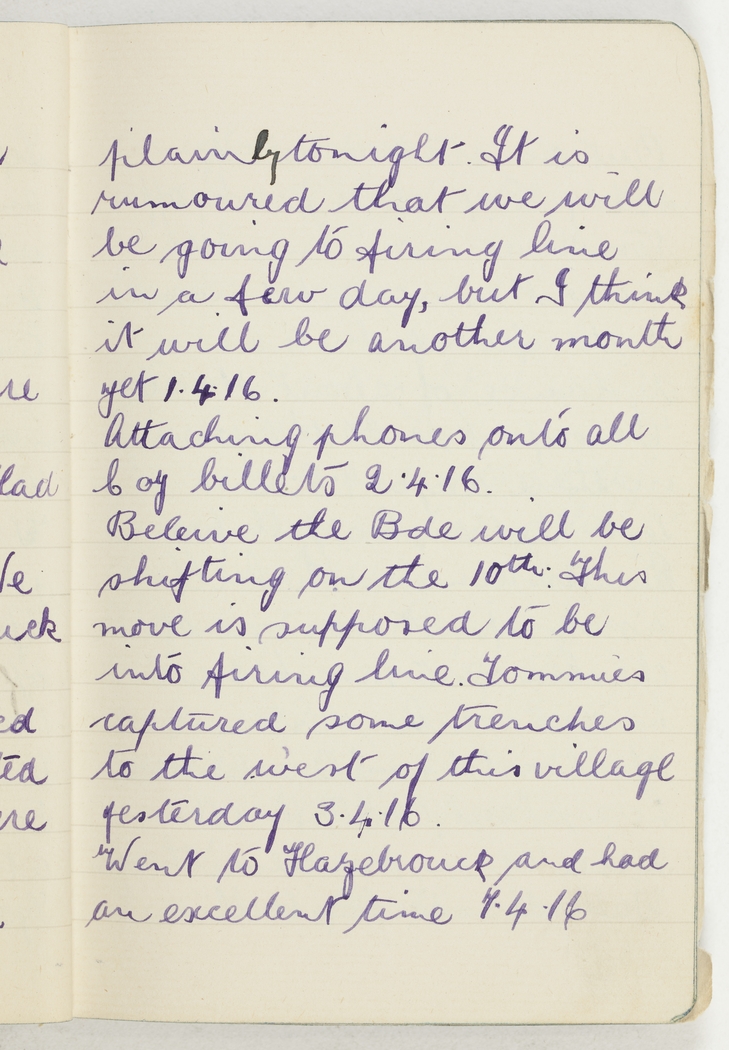 plainly tonight. It is
rumoured that we will
be going to firing line
in a few day, but I think
it will be another month
yet 1.4.16.
Attaching phones onto all
Coy billets 2.4.16.
Beleive the Bde will be
shifting on the 10th. This
move is supposed to be
into firing line. Tommies
captured some trenches
to the west of this village
yesterday 3.4.16.
Went to Hazebrouck and had
an excellent time 7.4.16
re
lad
uck
ed
ted
re